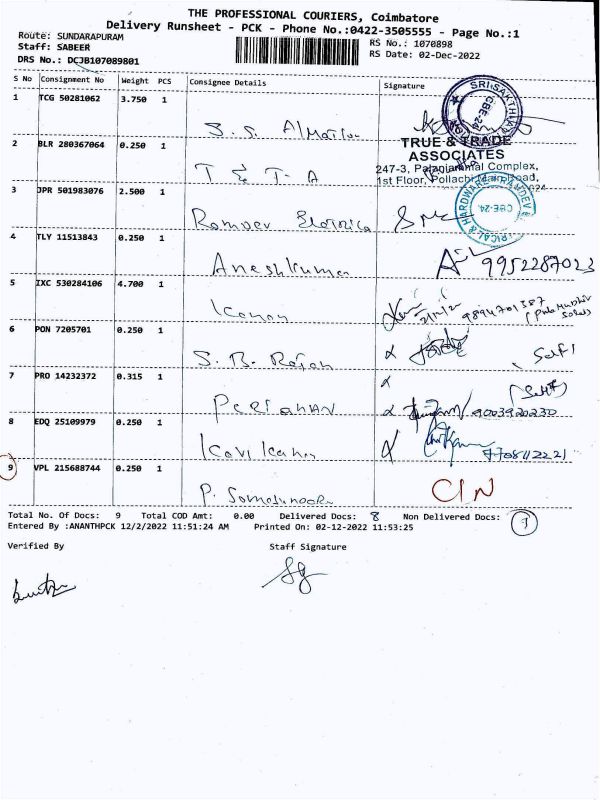 THE PROFESSIONAL COURIERS, Coimbatore
Delivery Runsheet - PCK - Phone No.:0422-3505555 - Page No.:1
Route: SUNDARAPURAM
RS No.: 1070898
Staff: SABEER
RS Date: 02-Dec-2022
DRS No.: DCJB107089801
S No Consignment No Weight PCS Consignee Details Signature
1 TCG 50281062 3.750 1
S. S.
SRI SAKTHI
CBE-24
2 BLR 280367064 0.250 1
T & T- A
TRUE & TRADE
ASSOCIATES
247-3, Palaniammal Complex,
1st Floor, Pollachi Main Road,
3 JPR 501983076 2.500 1
Ramdev
HARDWARE RAMDEV
CBE-24
4 TLY 11513843 0.250 1
Aneshkumar 9952287023
5 IXC 530284106 4.700 1
Kannan
9894701387
6 PON 7205701 0.250 1
S. B. Rajan
Self
7 PRO 14232372 0.315 1
Perianan
(Self)
9003920230
8 EDQ 25109979 0.250 1
Kavi Kannan
7708112221
9 VPL 215688744 0.250 1
P. CIN
Total No. Of Docs: 9 Total COD Amt: 0.00 Delivered Docs: 8 Non Delivered Docs: 1
Entered By :ANANTHPCK 12/2/2022 11:51:24 AM Printed On: 02-12-2022 11:53:25
Verified By Staff Signature